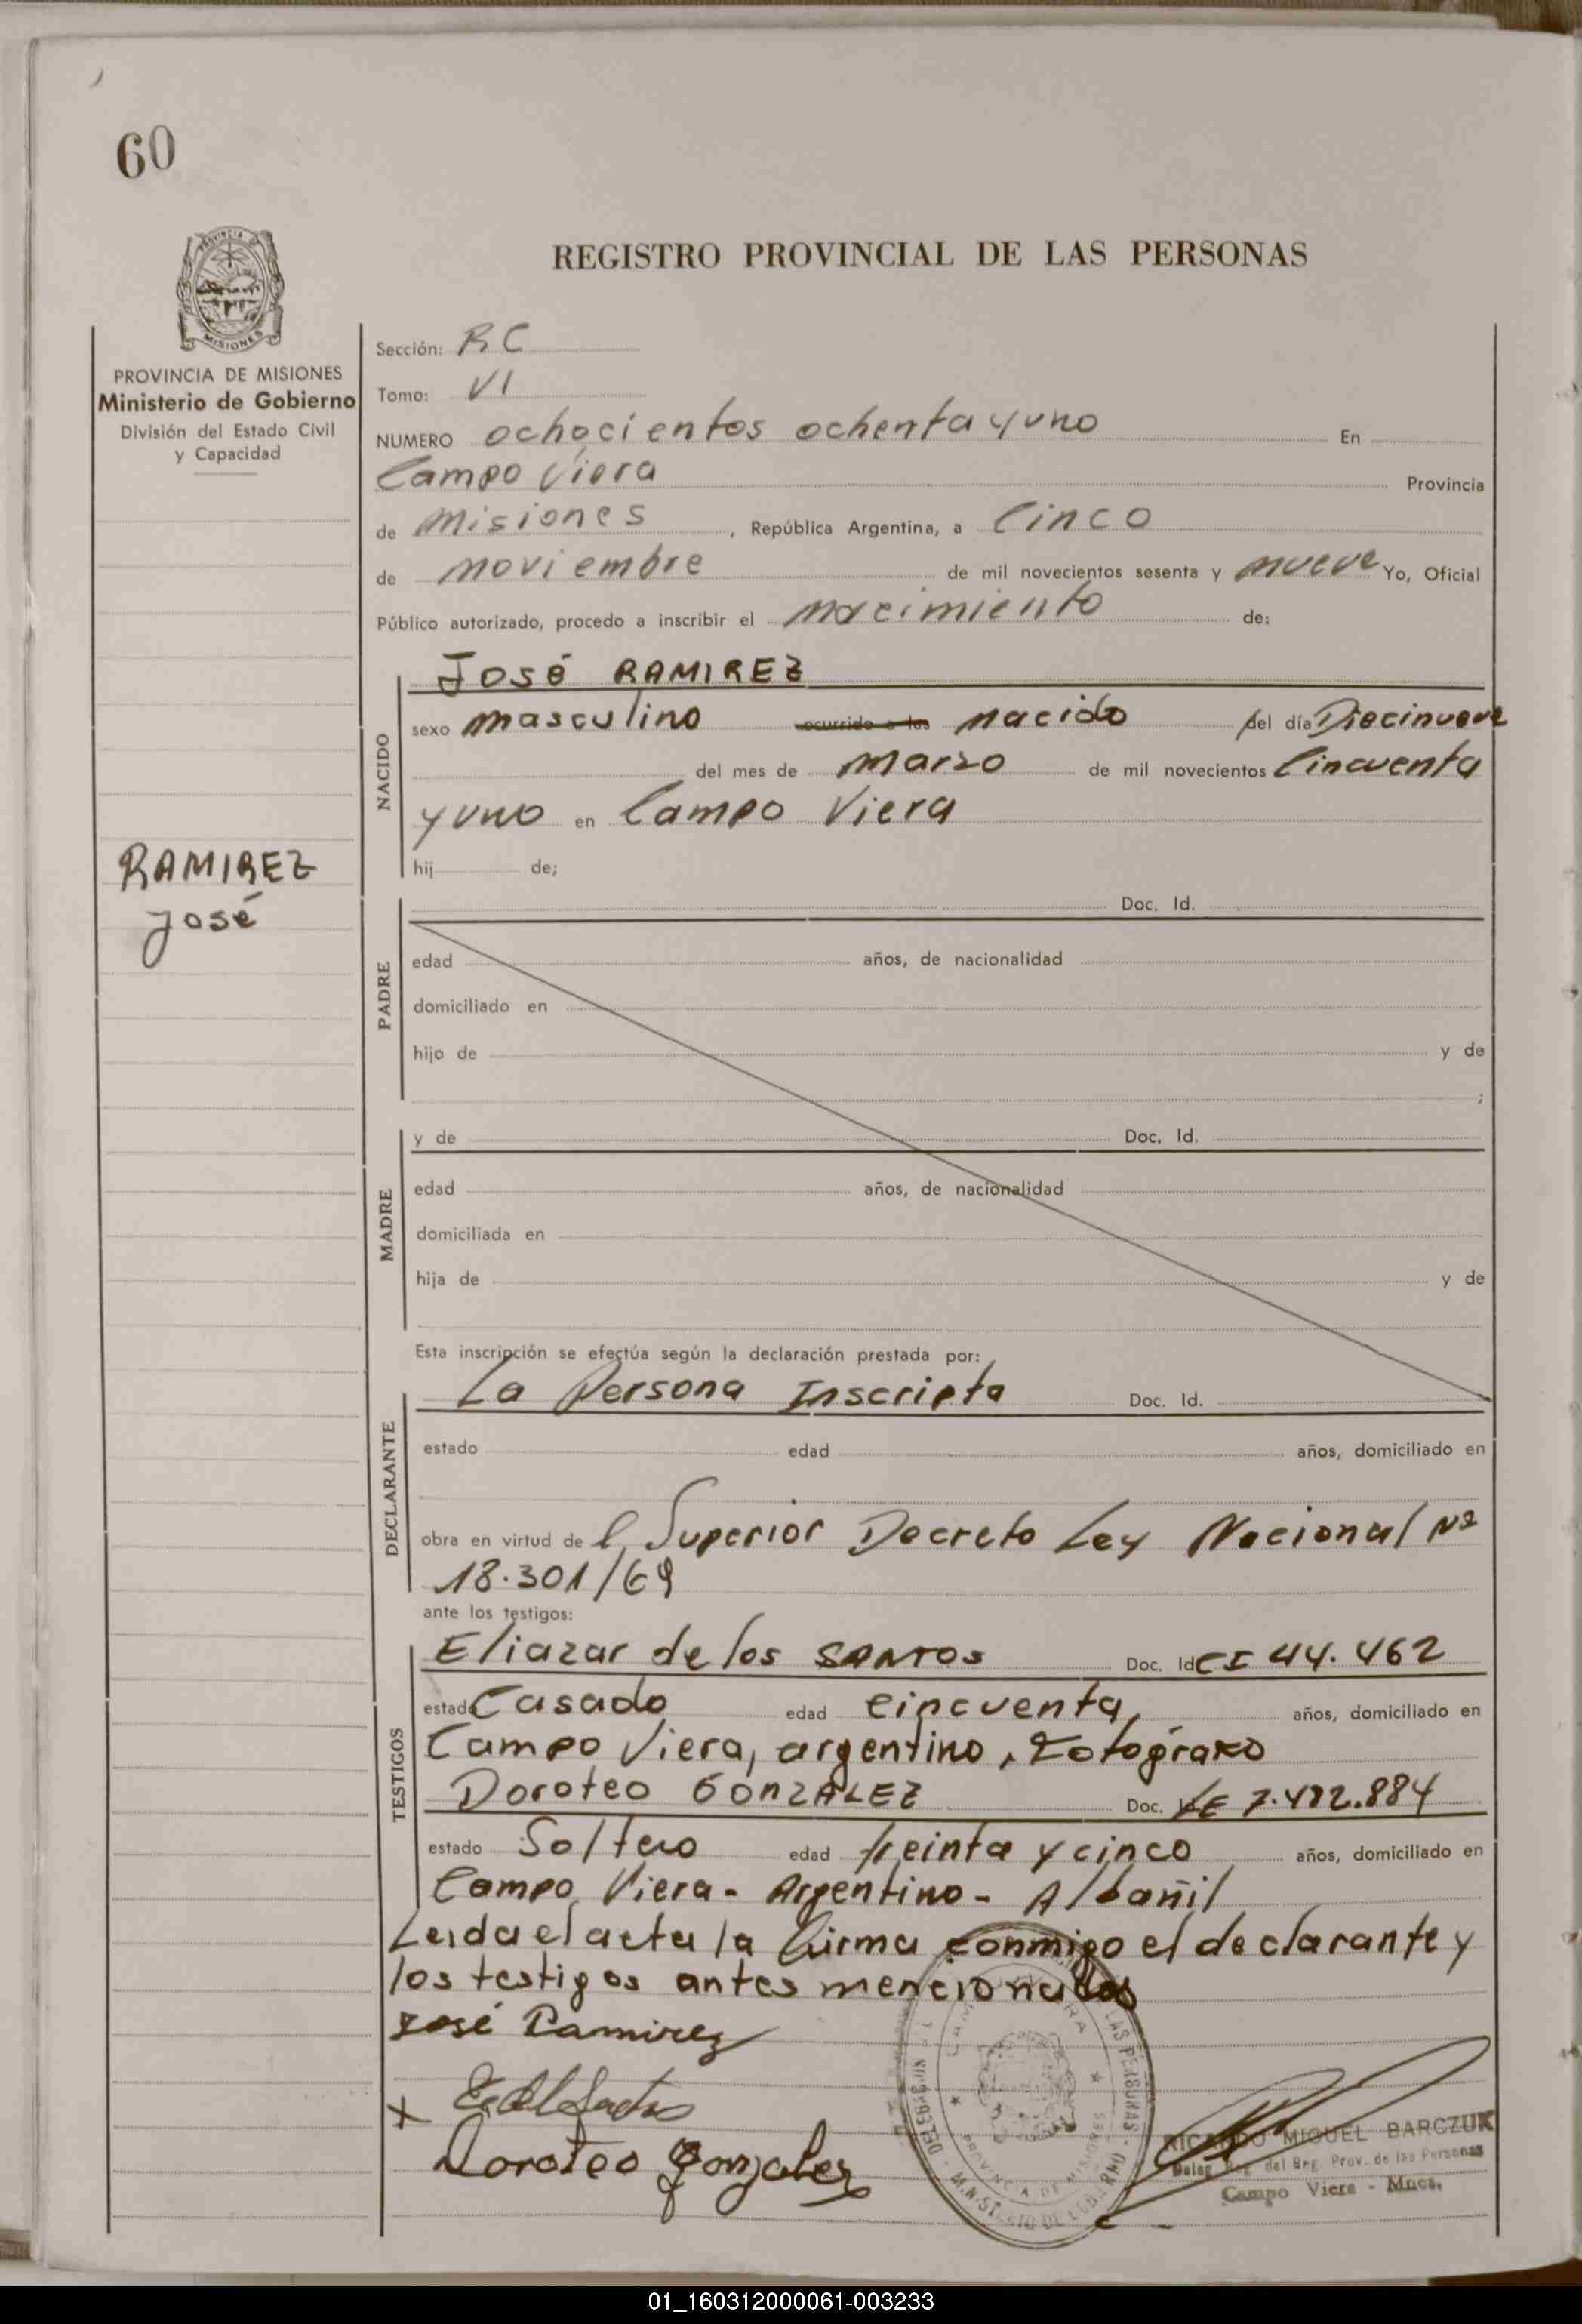 60
REGISTRO PROVINCIAL DE LAS PERSONAS
PROVINCIA DE MISIONES
Ministerio de Gobierno
División del Estado Civil
y Capacidad
RAMIREZ
José
Sección: RC
Tomo: VI
NUMERO ochocientos ochenta y uno En
Campo Viera Provincia
de Misiones, República Argentina, a Cinco
de noviembre de mil novecientos sesenta y nueve Yo, Oficial
Público autorizado, procedo a inscribir el nacimiento de:
NACIDO
José RAMIREZ
sexo masculino ocurrido a las nacido del día Diecinueve
del mes de marzo de mil novecientos Cincuenta
y uno en Campo Viera
hij de;
PADRE
Doc. Id.
edad años, de nacionalidad
domiciliado en
hijo de y de
;
MADRE
y de Doc. Id.
edad años, de nacionalidad
domiciliada en
hija de y de
Esta inscripción se efectúa según la declaración prestada por:
DECLARANTE
La Persona Inscripta Doc. Id.
estado edad años, domiciliado en
obra en virtud de l Superior Decreto Ley Nacional Nº
18.301/69
ante los testigos:
TESTIGOS
Eliazar de los SANTOS Doc. Id CI 44.462
estado Casado edad cincuenta, años, domiciliado en
Campo Viera, argentino, Fotógrafo
Doroteo GONZALEZ Doc. LE 7.482.884
estado Soltero edad treinta y cinco años, domiciliado en
Campo Viera - Argentino - Albañil
Leida el acta la firma conmigo el declarante y
los testigos antes mencionados
José Ramirez
Doroteo Gonzalez
DELEGACION LAS PERSONAS - MINISTERIO DE GOBIERNO
PROVINCIA DE MISIONES
RICARDO MIGUEL BARCZUK
Deleg. del Reg. Prov. de las Personas
Campo Viera - Mnes.
01_160312000061-003233